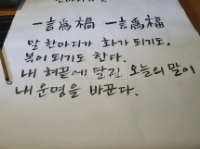 一言為禍 一言為福
말 한마디가 화가 되기도,
복이 되기도 한다.
내 혀끝에 달린 오늘의 말이
내 운명을 바꾼다.